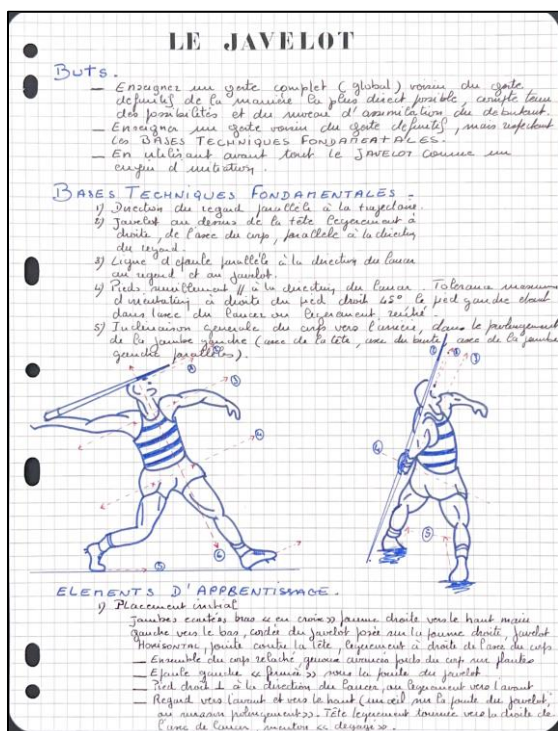 LE JAVELOT
BUTS.
— Enseigner un geste complet (global) voisin du geste
definitif de la manière la plus direct possible, compte tenu
des possibilités et du niveau d'assimilation du debutant.
— Enseigner un geste voisin du geste definitif, mais respectant
les BASES TECHNIQUES FONDAMENTALES.
— En utilisant avant tout le JAVELOT comme un
engin d'initiation.
BASES TECHNIQUES FONDAMENTALES -
1) Direction du regard parallèle à la trajectoire.
2) Javelot au dessus de la tête legerement à
droite, de l'axe du corps, parallèle à la direction
du regard.
3) Ligne d'epaule parallèle à la direction du lancer
au regard et au javelot.
4) Pieds sensiblement // à la direction du lancer. Tolerance maximum
d'orientation à droite du pied droit 45° le pied gauche etant
dans l'axe du lancer ou legerement
5) Inclinaison generale du corps vers l'arriere, dans le prolongement
de la jambe gauche (axe de la tête, axe du buste, axe de la jambe
gauche parallèles).
ELEMENTS D'APPRENTISSAGE.
1) Placement initial
Jambes ecartées bras « en croix » paume droite vers le haut main
gauche vers le bas, cordée du javelot posée sur la paume droite, javelot
HORISONTAL, pointe contre la tête, legerement à droite de l'axe du corps.
— Ensemble du corps relaché, genoux avancés poids du corps sur plantes
— Epaule gauche « fermée » sous la pointe du javelot
— Pied droit ⊥ à la direction du lancer, ou legerement vers l'avant
— Regard vers l'avant et vers le haut (un œil sur la pointe du javelot,
ou prolongement). Tête legerement tournée vers la droite de
l'axe de lancer, menton « degagé ».